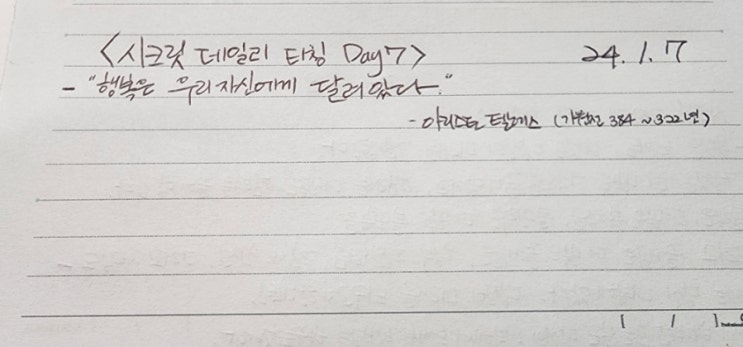 <시크릿 데일리 티칭 Day7> 24.1.7
- "행복은 우리자신에게 달려있다."
- 아리스토텔레스 (기원전 384~322년)